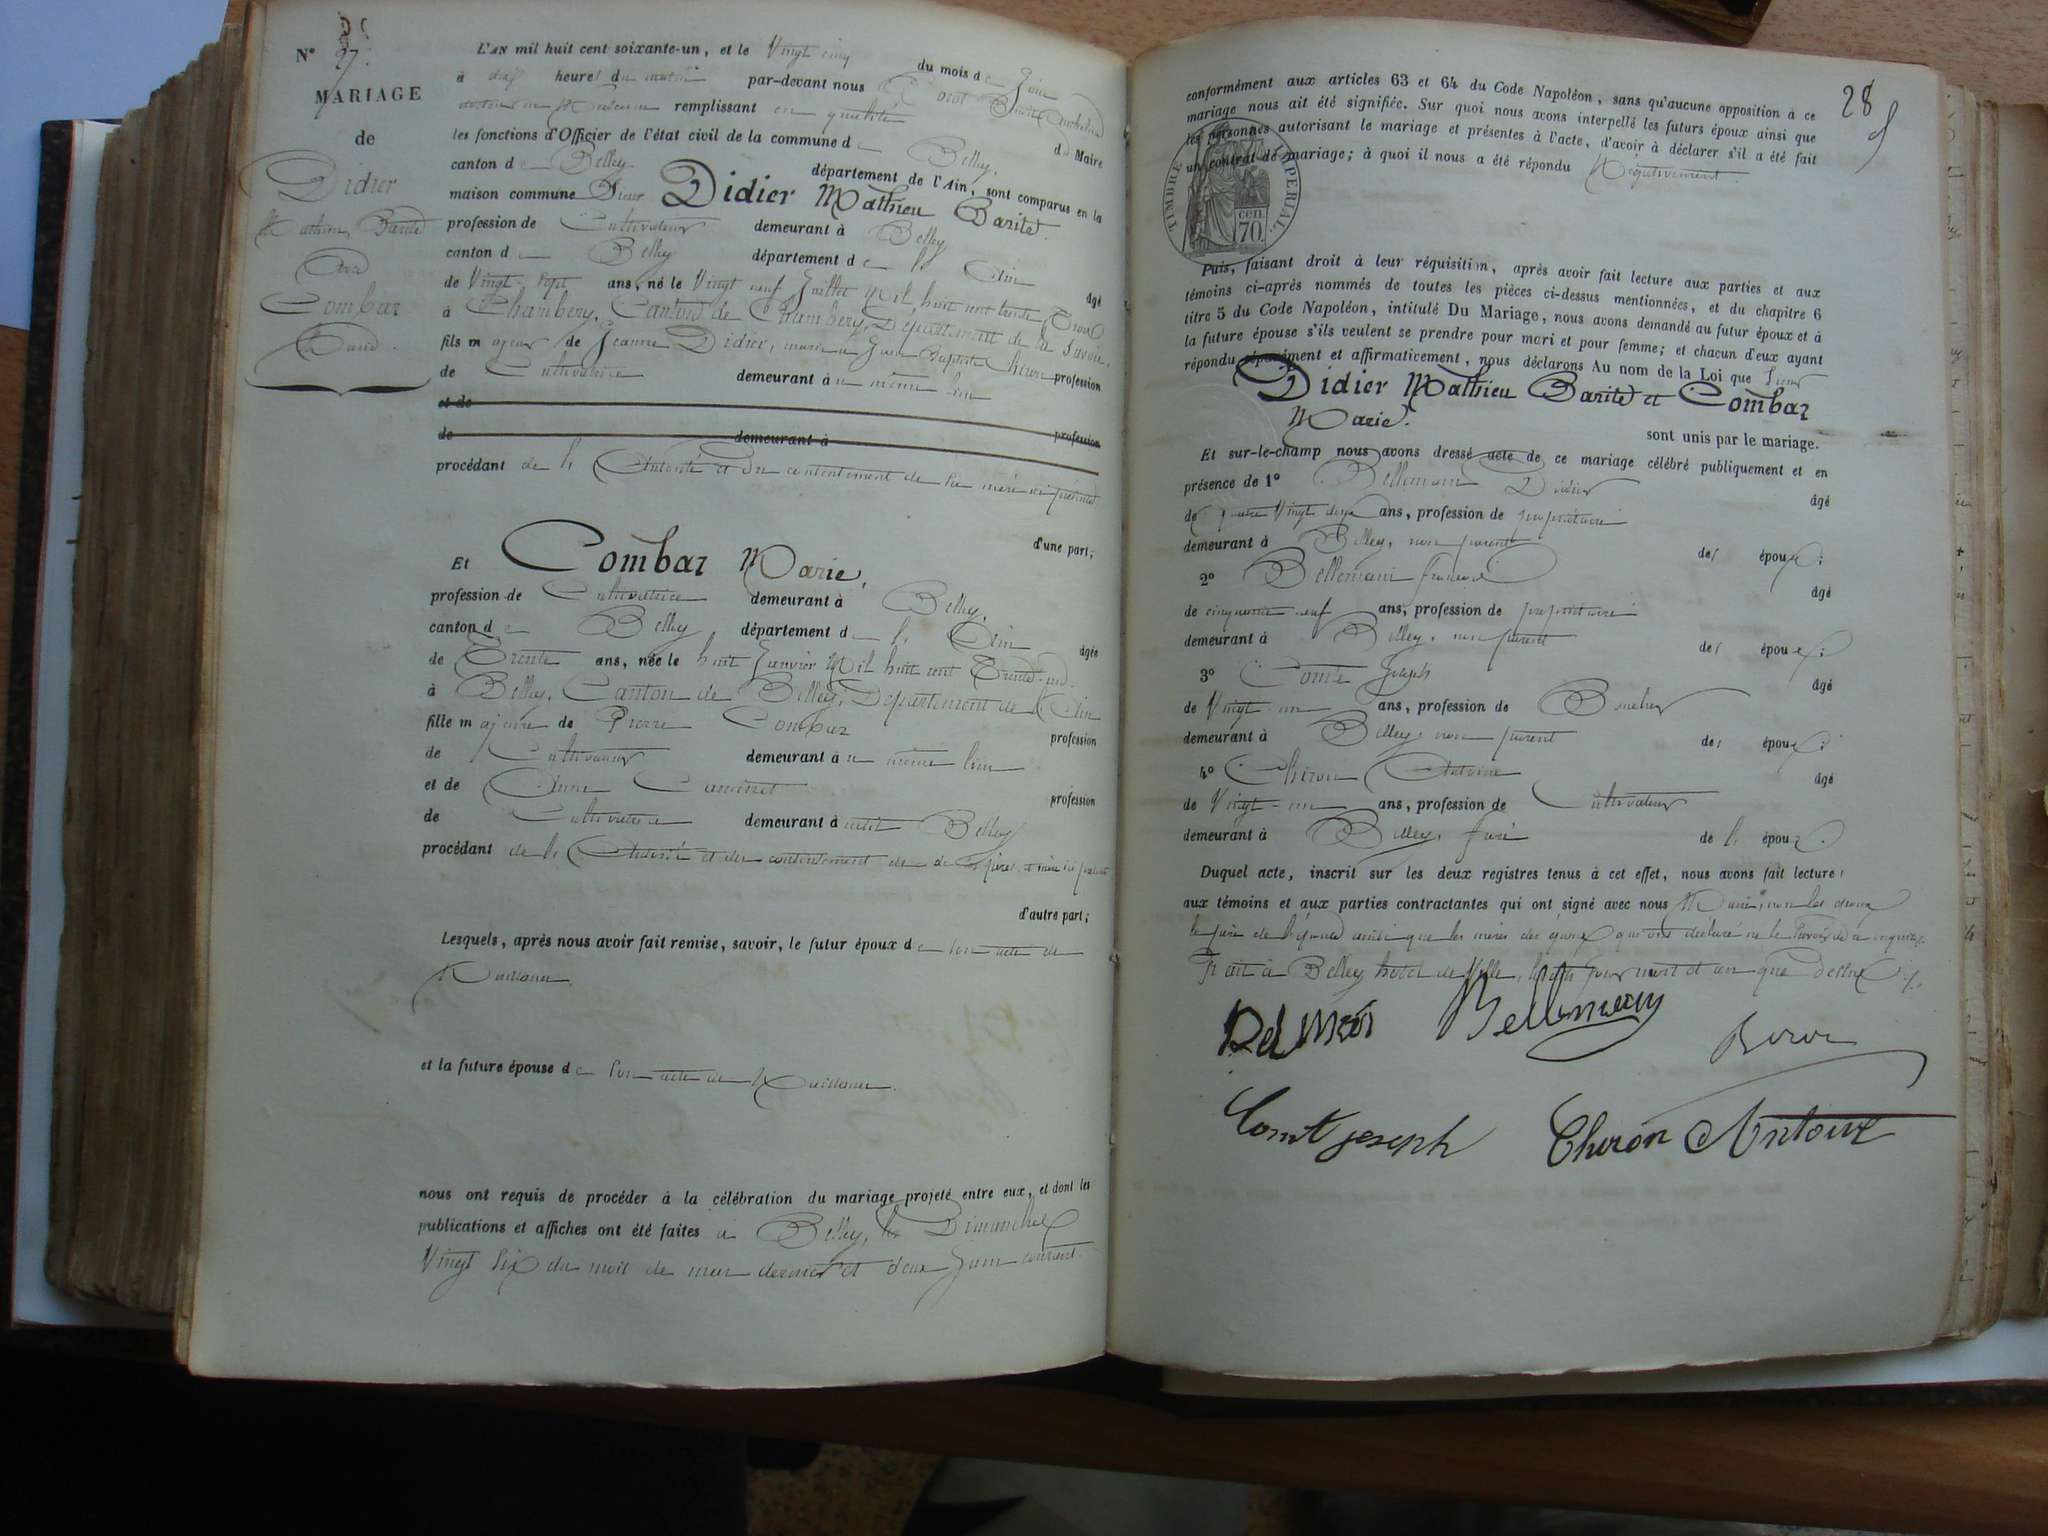 N° 27.
MARIAGE
de
Didier
Mathieu Barité
Avec
Combaz
Marie.
L'AN mil huit cent soixante-un, et le Vingt cinq du mois de Juin
à dix heures du matin par-devant nous
remplissant en qualité d Maire
les fonctions d'Officier de l'état civil de la commune de Belley,
canton de Belley, département de l'Ain, sont comparus en la
maison commune Sieur Didier Mathieu Barité.
profession de Cultivateur demeurant à Belley
canton de Belley département de l' Ain âgé
de Vingt-sept ans, né le Vingt neuf Juillet Mil huit cent trente trois
à Chambéry, Canton de Chambéry, Département de la Savoie.
fils majeur de Jeanne Didier, mariée à Jean Baptiste Chiron profession
de Cultivatrice demeurant à u même lieu
et de
de demeurant à profession
procédant de l' Autorité et du contentement de sa mère ici présente
d'une part;
Et Combaz Marie,
profession de Cultivatrice demeurant à Belley,
canton de Belley département de l' Ain âgée
de Trente ans, née le huit Janvier Mil huit cent Trente-un.
à Belley, Canton de Belley, Département de l'Ain
fille majeure de Pierre Combaz profession
de Cultivateur demeurant à u même lieu
et de Anne profession
de Cultivatrice demeurant à audit Belley
procédant de l' Autorité et du contentement de ses père et mère ici présents
d'autre part;
Lesquels, après nous avoir fait remise, savoir, le futur époux de son acte de
Naissance.
et la future épouse de son acte de Naissance.
nous ont requis de procéder à la célébration du mariage projeté entre eux, et dont les
publications et affiches ont été faites à Belley, les Dimanches
Vingt six du mois de mai dernier et deux Juin courant.
28
conformément aux articles 63 et 64 du Code Napoléon, sans qu'aucune opposition à ce
mariage nous ait été signifiée. Sur quoi nous avons interpellé les futurs époux ainsi que
les personnes autorisant le mariage et présentes à l'acte, d'avoir à déclarer s'il a été fait
un contrat de mariage; à quoi il nous a été répondu Négativement.
TIMBRE IMPÉRIAL.
70 cen
Puis, faisant droit à leur réquisition, après avoir fait lecture aux parties et aux
témoins ci-après nommés de toutes les pièces ci-dessus mentionnées, et du chapitre 6
titre 5 du Code Napoléon, intitulé Du Mariage, nous avons demandé au futur époux et à
la future épouse s'ils veulent se prendre pour mari et pour femme; et chacun d'eux ayant
répondu séparément et affirmativement, nous déclarons Au nom de la Loi que Sieur
Didier Mathieu Barité et Combaz
Marie.
sont unis par le mariage.
Et sur-le-champ nous avons dressé acte de ce mariage célébré publiquement et en
présence de 1° Bellemain Didier âgé
de quatre Vingt deux ans, profession de propriétaire
demeurant à Belley, non parent des époux;
2° Bellemain françois âgé
de cinquante neuf ans, profession de propriétaire
demeurant à Belley, non parent des époux;
3° Comte Joseph âgé
de Vingt-un ans, profession de Boucher
demeurant à Belley, non parent des époux;
4° Chiron Antoine âgé
de Vingt-un ans, profession de Cultivateur
demeurant à Belley, frère de l' époux.
Duquel acte, inscrit sur les deux registres tenus à cet effet, nous avons fait lecture
aux témoins et aux parties contractantes qui ont signé avec nous Maire, non les époux
le père de l'épouse ainsi que les mères des époux qui ont déclaré ne le savoir de ce enquis
Fait à Belley, hôtel de Ville, lesdits jour mois et an que dessus
Bellemain
Comte joseph
Chiron Antoine